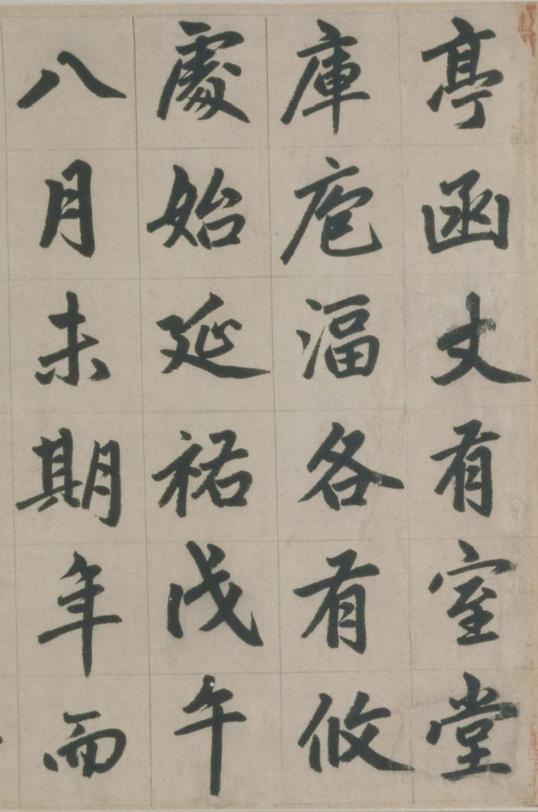 亭函丈有室堂
庫庖湢各有攸
處始延祐戊午
八月未期年而